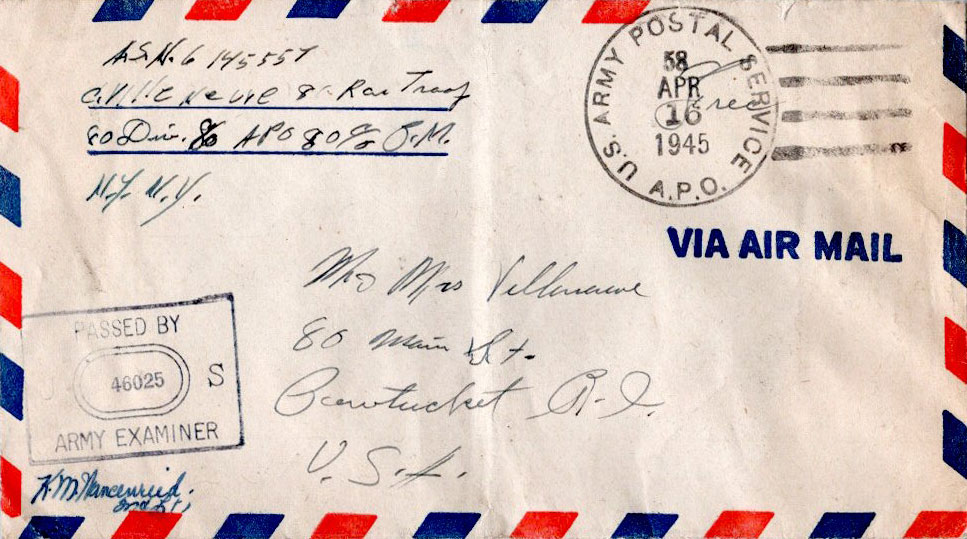 A.S.N. 6 145557
C. Villeneuve 80 Rcn Troop
80 Div. % APO 80 % P.M.
N.Y. N.Y.
U.S. ARMY POSTAL SERVICE
58
APR
16
1945
A.P.O.
Free
VIA AIR MAIL
Mr & Mrs Villeneuve
80 Main St.
Pawtucket R.I.
U.S.A.
PASSED BY
U 46025 S
ARMY EXAMINER